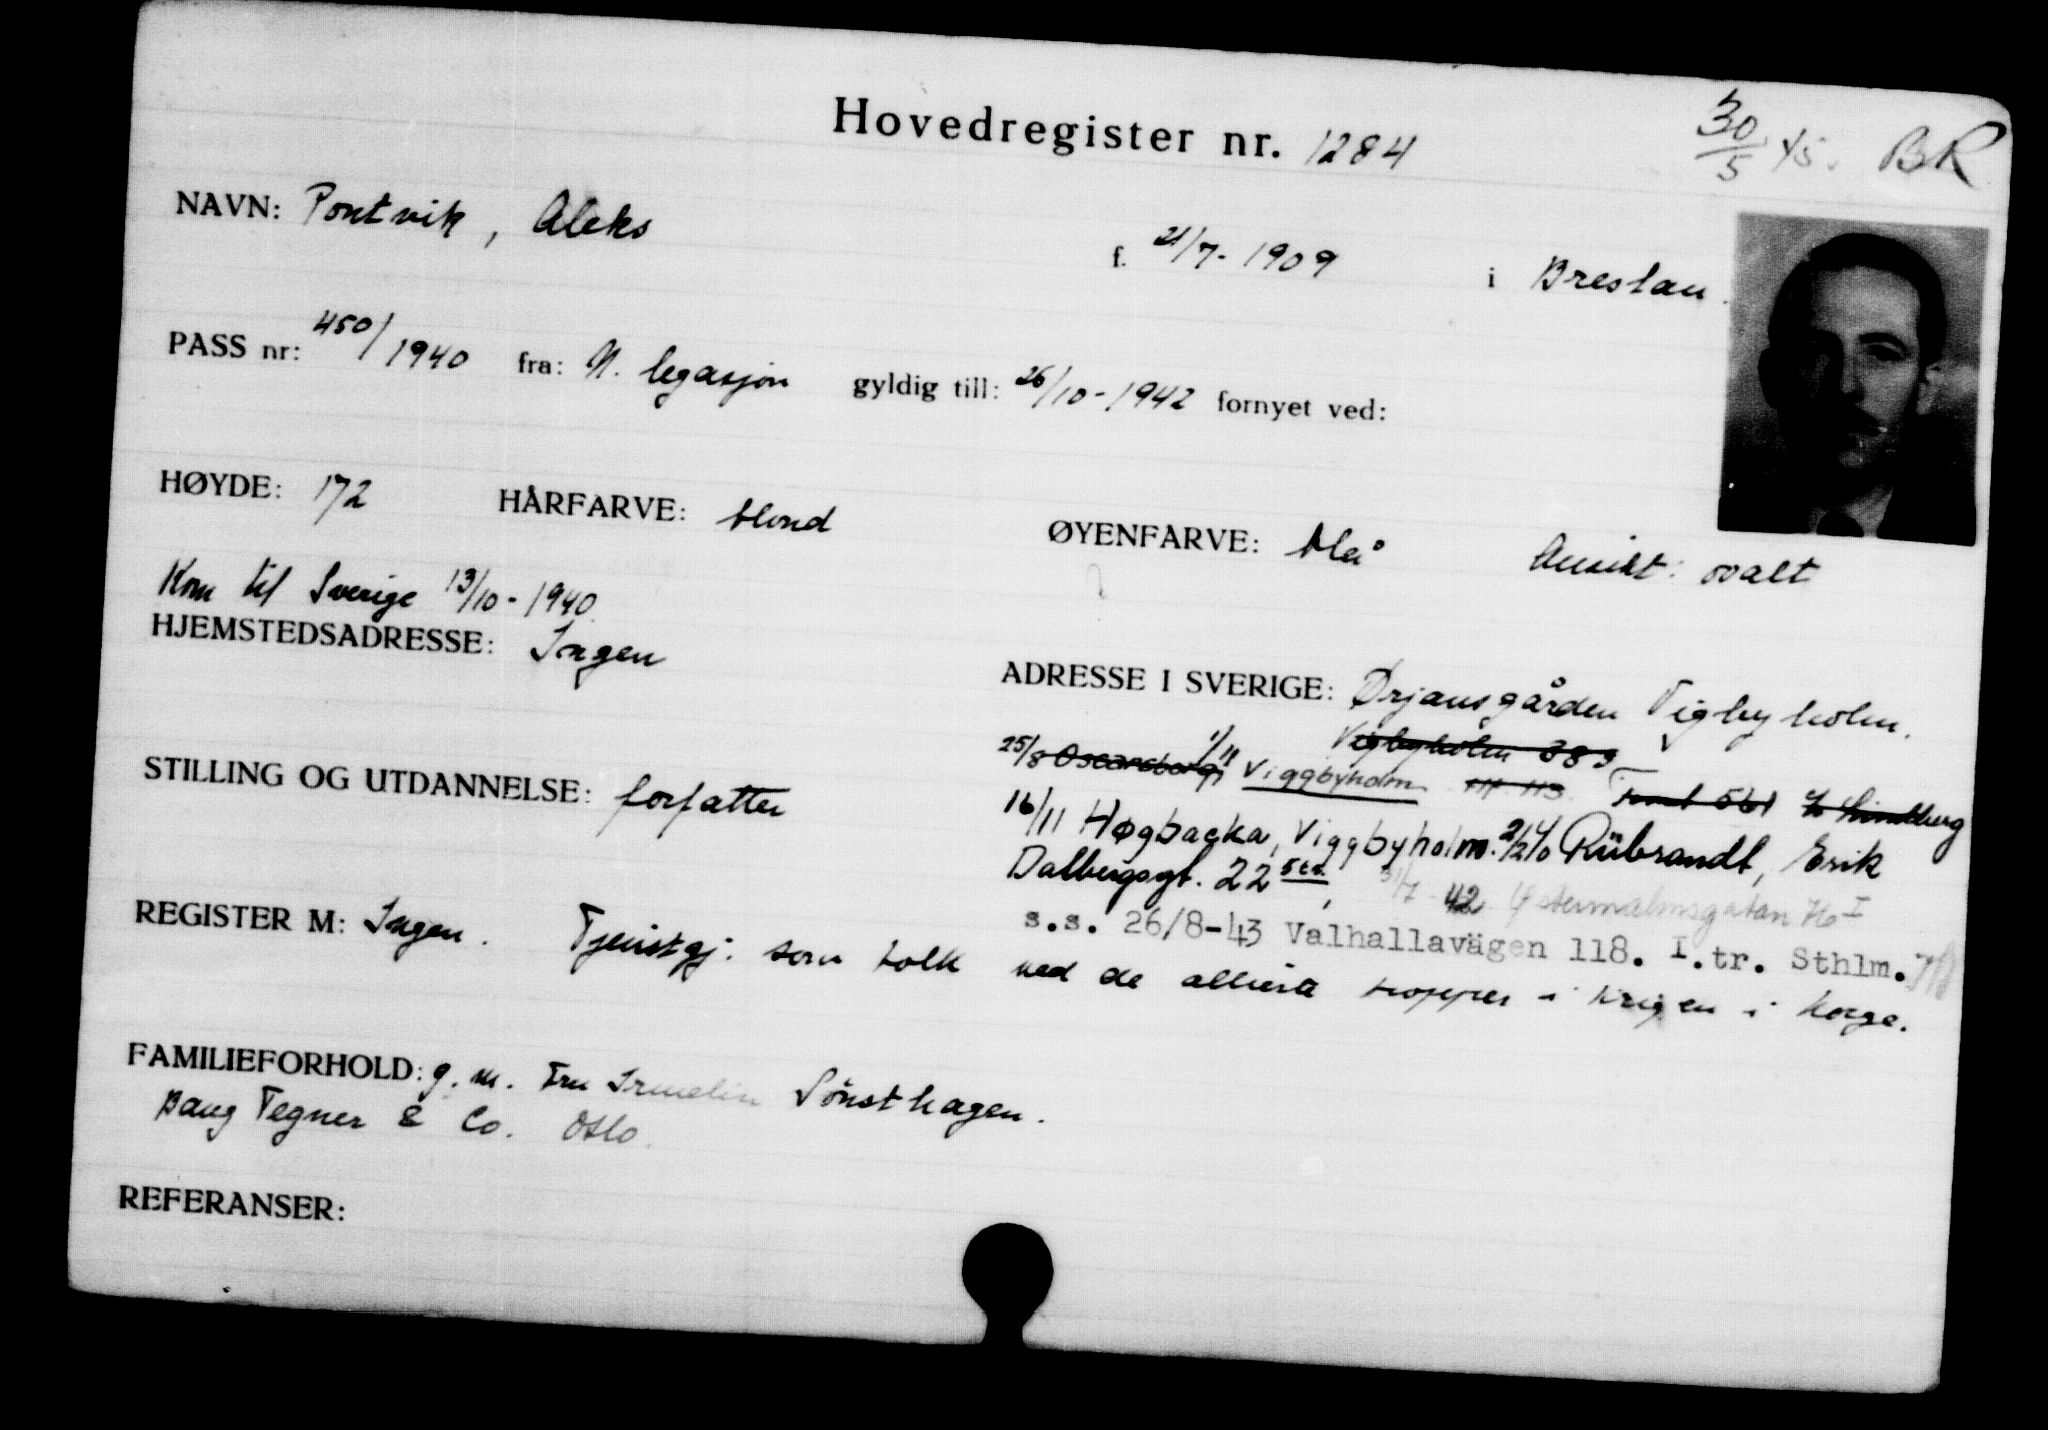 Hovedregister nr. 1284
30/5 45. BR
NAVN: Pontvik, Aleks f. 21/7-1909 i Breslau.
PASS nr: 450/1940 fra: N. legasjon gyldig till: 26/10-1942 fornyet ved:
HØYDE: 172 HÅRFARVE: blond ØYENFARVE: blå Ansikt: ovalt
Kom til Sverige 13/10-1940.
HJEMSTEDSADRESSE: Ingen
ADRESSE I SVERIGE: Ørjansgården Vigbyholm.
Vigbyholm 383
25/8 Oscarsborg 1/11 Viggbyholm 113 561 Lindberg
16/11 Høgbacka, Viggbyholm. Rübrandt, Erik
Dalbergsgt. 22 5tr., 31/7 42 Østermalmsgatan 76 I
s.s. 26/8-43 Valhallavägen 118. I.tr. Sthlm.
STILLING OG UTDANNELSE: forfatter
REGISTER M: Ingen. Tjenstgj: som tolk ved de allierte tropper i krigen i Norge.
FAMILIEFORHOLD: g. m. Fru Irmelin Sönsthagen.
Bang Tegner & Co. Oslo.
REFERANSER: